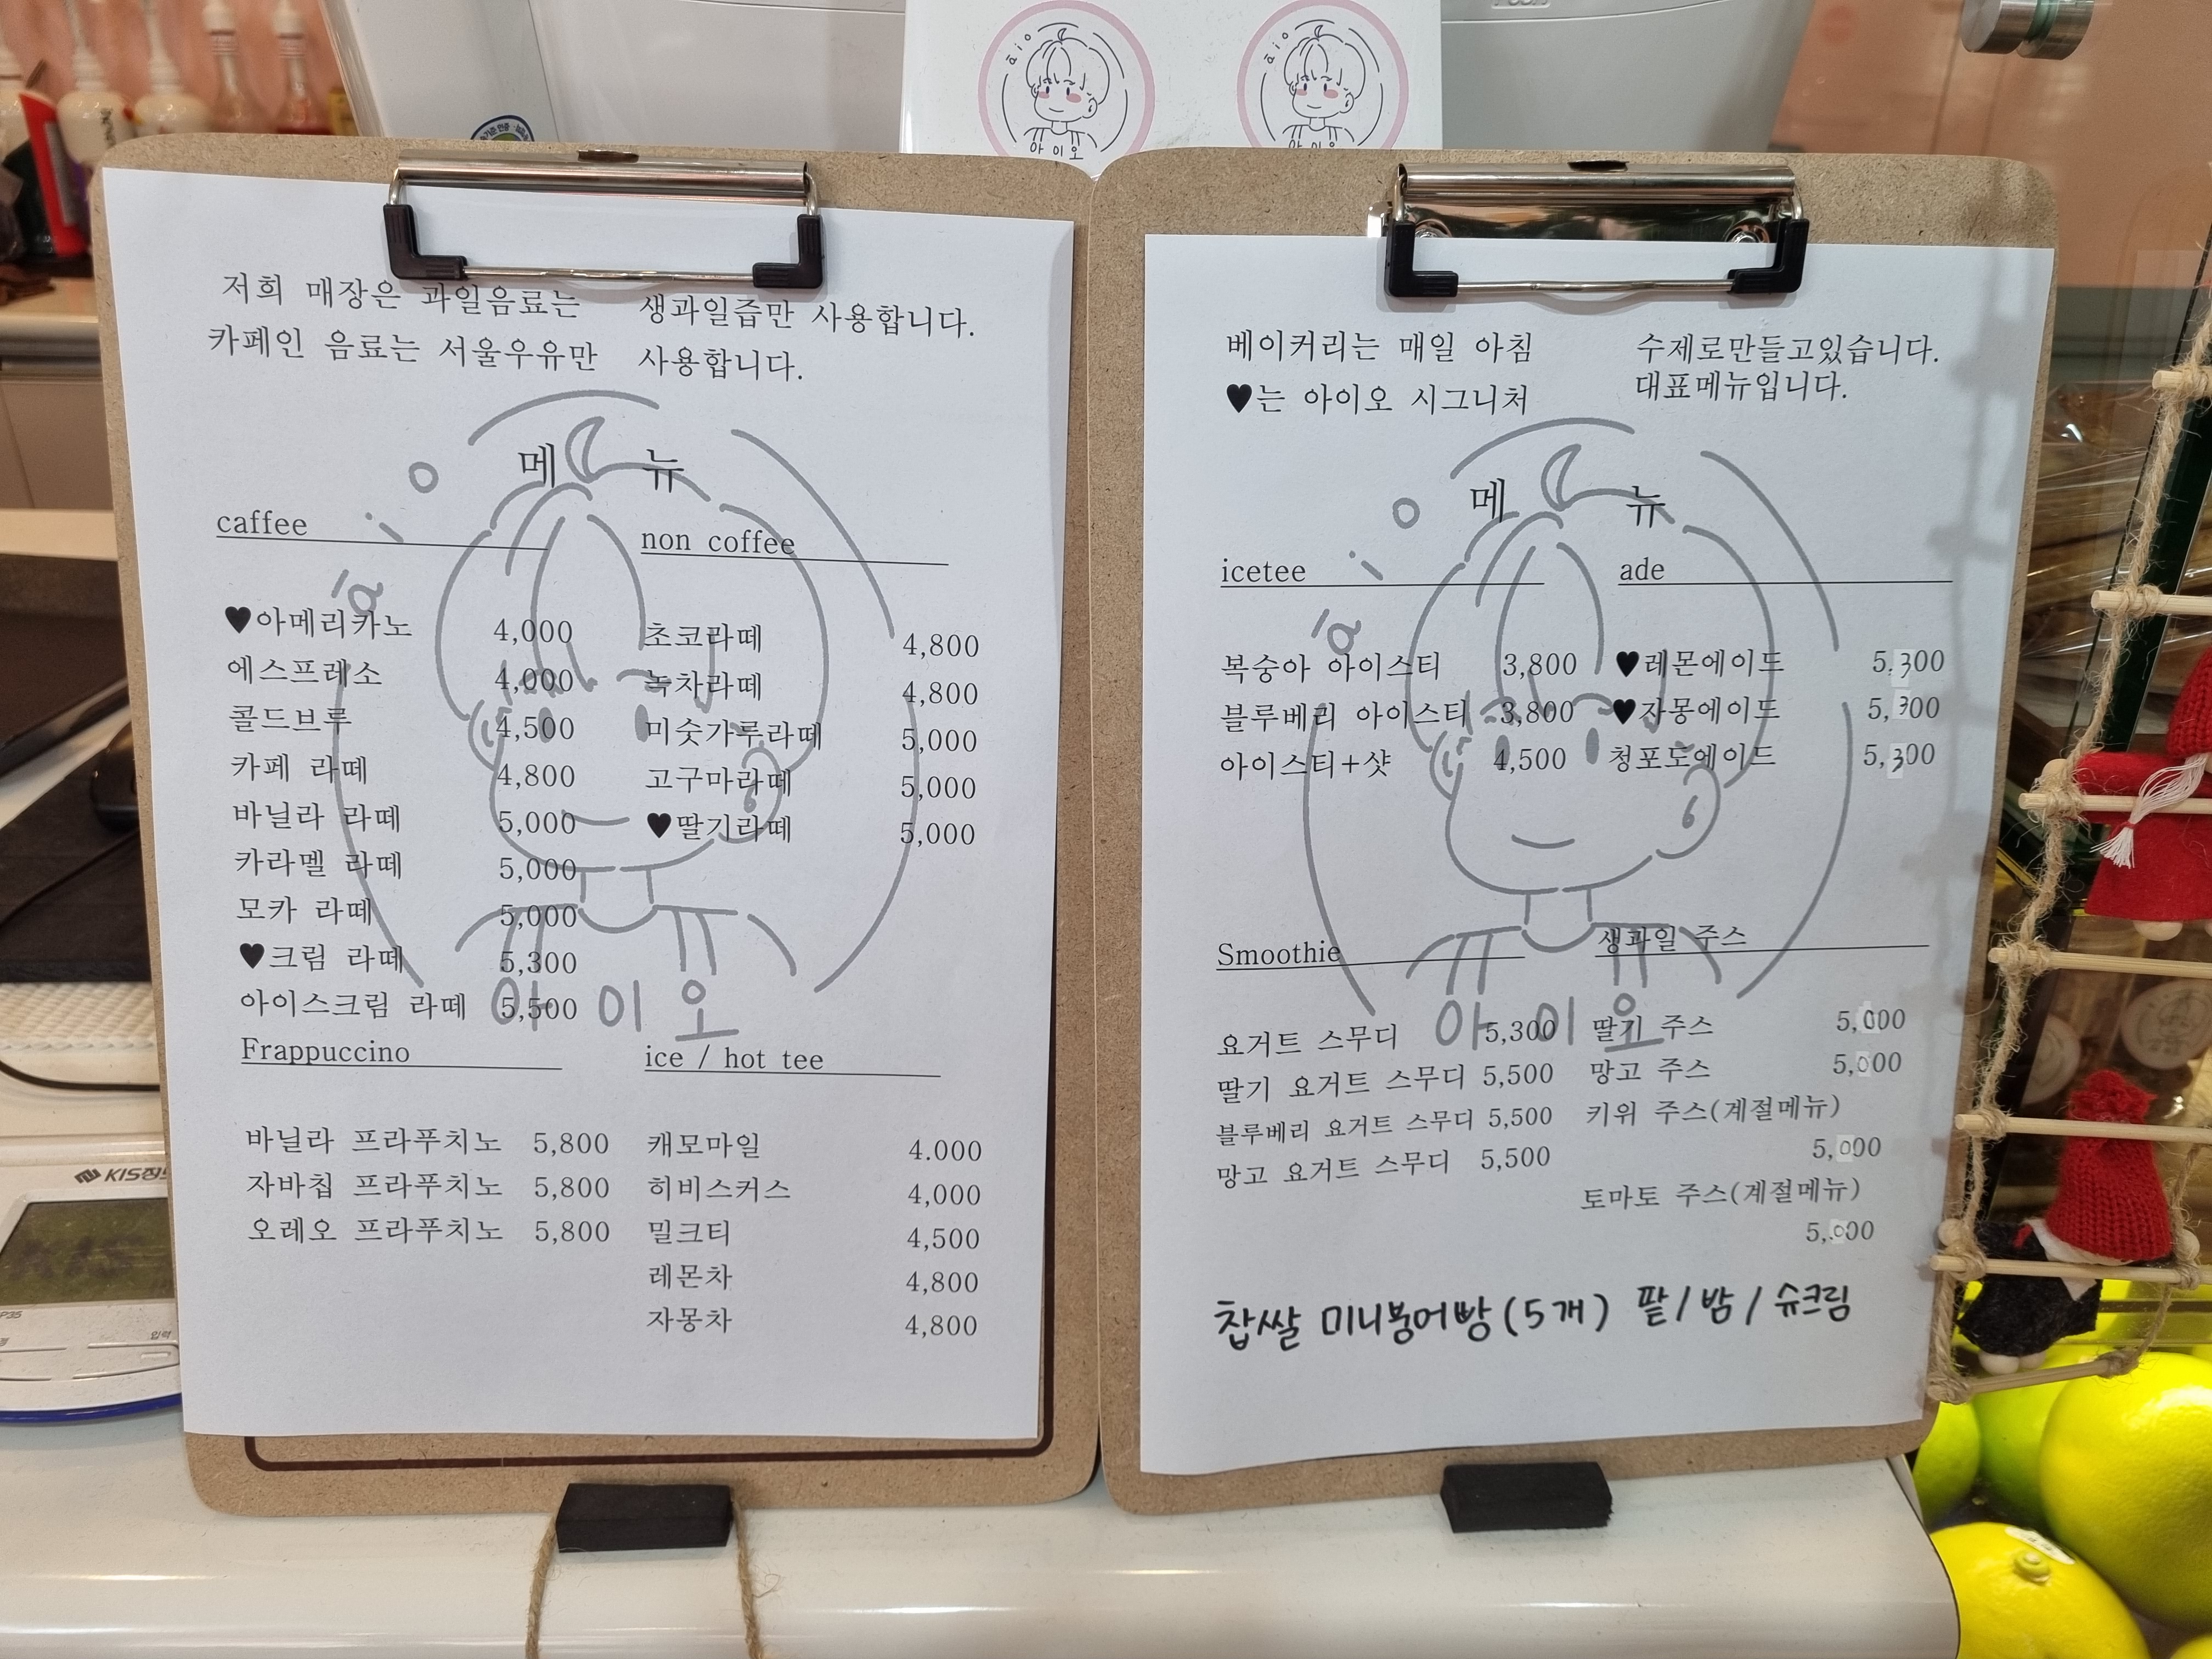 āio
아이오
āio
아이오
저희 매장은 과일음료는 생과일즙만 사용합니다.
카페인 음료는 서울우유만 사용합니다.
메 뉴
āio
caffee
♥아메리카노 4,000
에스프레소 4,000
콜드브루 4,500
카페 라떼 4,800
바닐라 라떼 5,000
카라멜 라떼 5,000
모카 라떼 5,000
♥크림 라떼 5,300
아이스크림 라떼 5,500
non coffee
초코라떼 4,800
녹차라떼 4,800
미숫가루라떼 5,000
고구마라떼 5,000
♥딸기라떼 5,000
아이오
Frappuccino
바닐라 프라푸치노 5,800
자바칩 프라푸치노 5,800
오레오 프라푸치노 5,800
ice / hot tee
캐모마일 4.000
히비스커스 4,000
밀크티 4,500
레몬차 4,800
자몽차 4,800
베이커리는 매일 아침 수제로만들고있습니다.
♥는 아이오 시그니처 대표메뉴입니다.
메 뉴
āio
icetee
복숭아 아이스티 3,800
블루베리 아이스티 3,800
아이스티+샷 4,500
ade
♥레몬에이드 5,300
♥자몽에이드 5,300
청포도에이드 5,300
Smoothie
요거트 스무디 5,300
딸기 요거트 스무디 5,500
블루베리 요거트 스무디 5,500
망고 요거트 스무디 5,500
생과일 주스
딸기 주스 5,000
망고 주스 5,000
키위 주스(계절메뉴)
5,000
토마토 주스(계절메뉴)
5,000
아이오
찹쌀 미니붕어빵(5개) 팥/밤/슈크림
KIS정보
입력